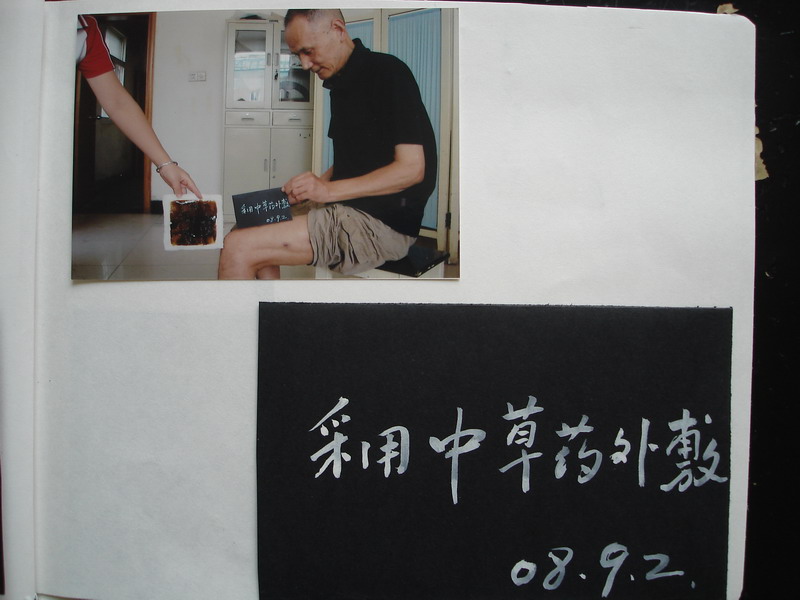 采用中草药外敷
08.9.2
采用中草药外敷
08.9.2.